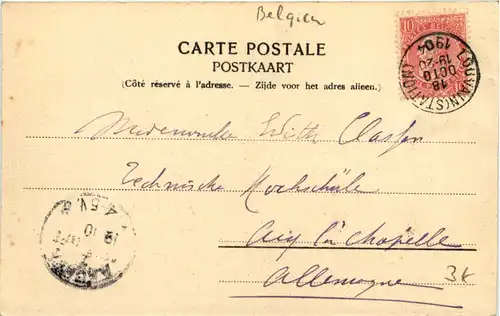 Belgien
CARTE POSTALE
POSTKAART
(Côté réservé à l'adresse. — Zijde voor het adres alleen.)
10
LOUVAIN (STATION)
18
OCTO
19-20
1904
With Classen
Technische Hochschule
Aix la Chapelle
Allemagne
3k
19
10